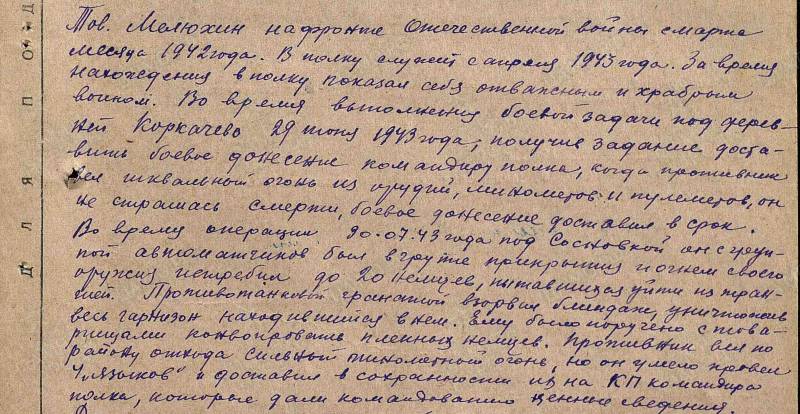 Тов. Мелюхин на фронте Отечественной войны с марта
месяца 1942 года. В полку служит с апреля 1943 года. За время
нахождения в полку показал себя отважным и храбрым
воином. Во время выполнения боевой задачи под дерев-
ней Коркачево 29 июня 1943 года, получив задание доста-
вить боевое донесение командиру полка, когда противник
вел шквальной огонь из орудий, минометов и пулеметов, он
не страшась смерти, боевое донесение доставил в срок.
Во время операции 20.07.43 года под Сосновкой он с груп-
пой автоматчиков был в группе прикрытия и огнем своего
оружия истребил до 20 немцев, пытавшихся уйти из тран-
шей. Противотанковой гранатой взорвал блиндаж, уничтожив
весь гарнизон находившийся в нем. Ему было поручено с това-
рищами конвоировать пленных немцев. Противник вел по
району отхода сильный минометной огонь, но он умело провел
4 "языков" и доставил в сохранности их на КП командира
полка, которые дали командованию ценные сведения.
Д Л Я П О Д